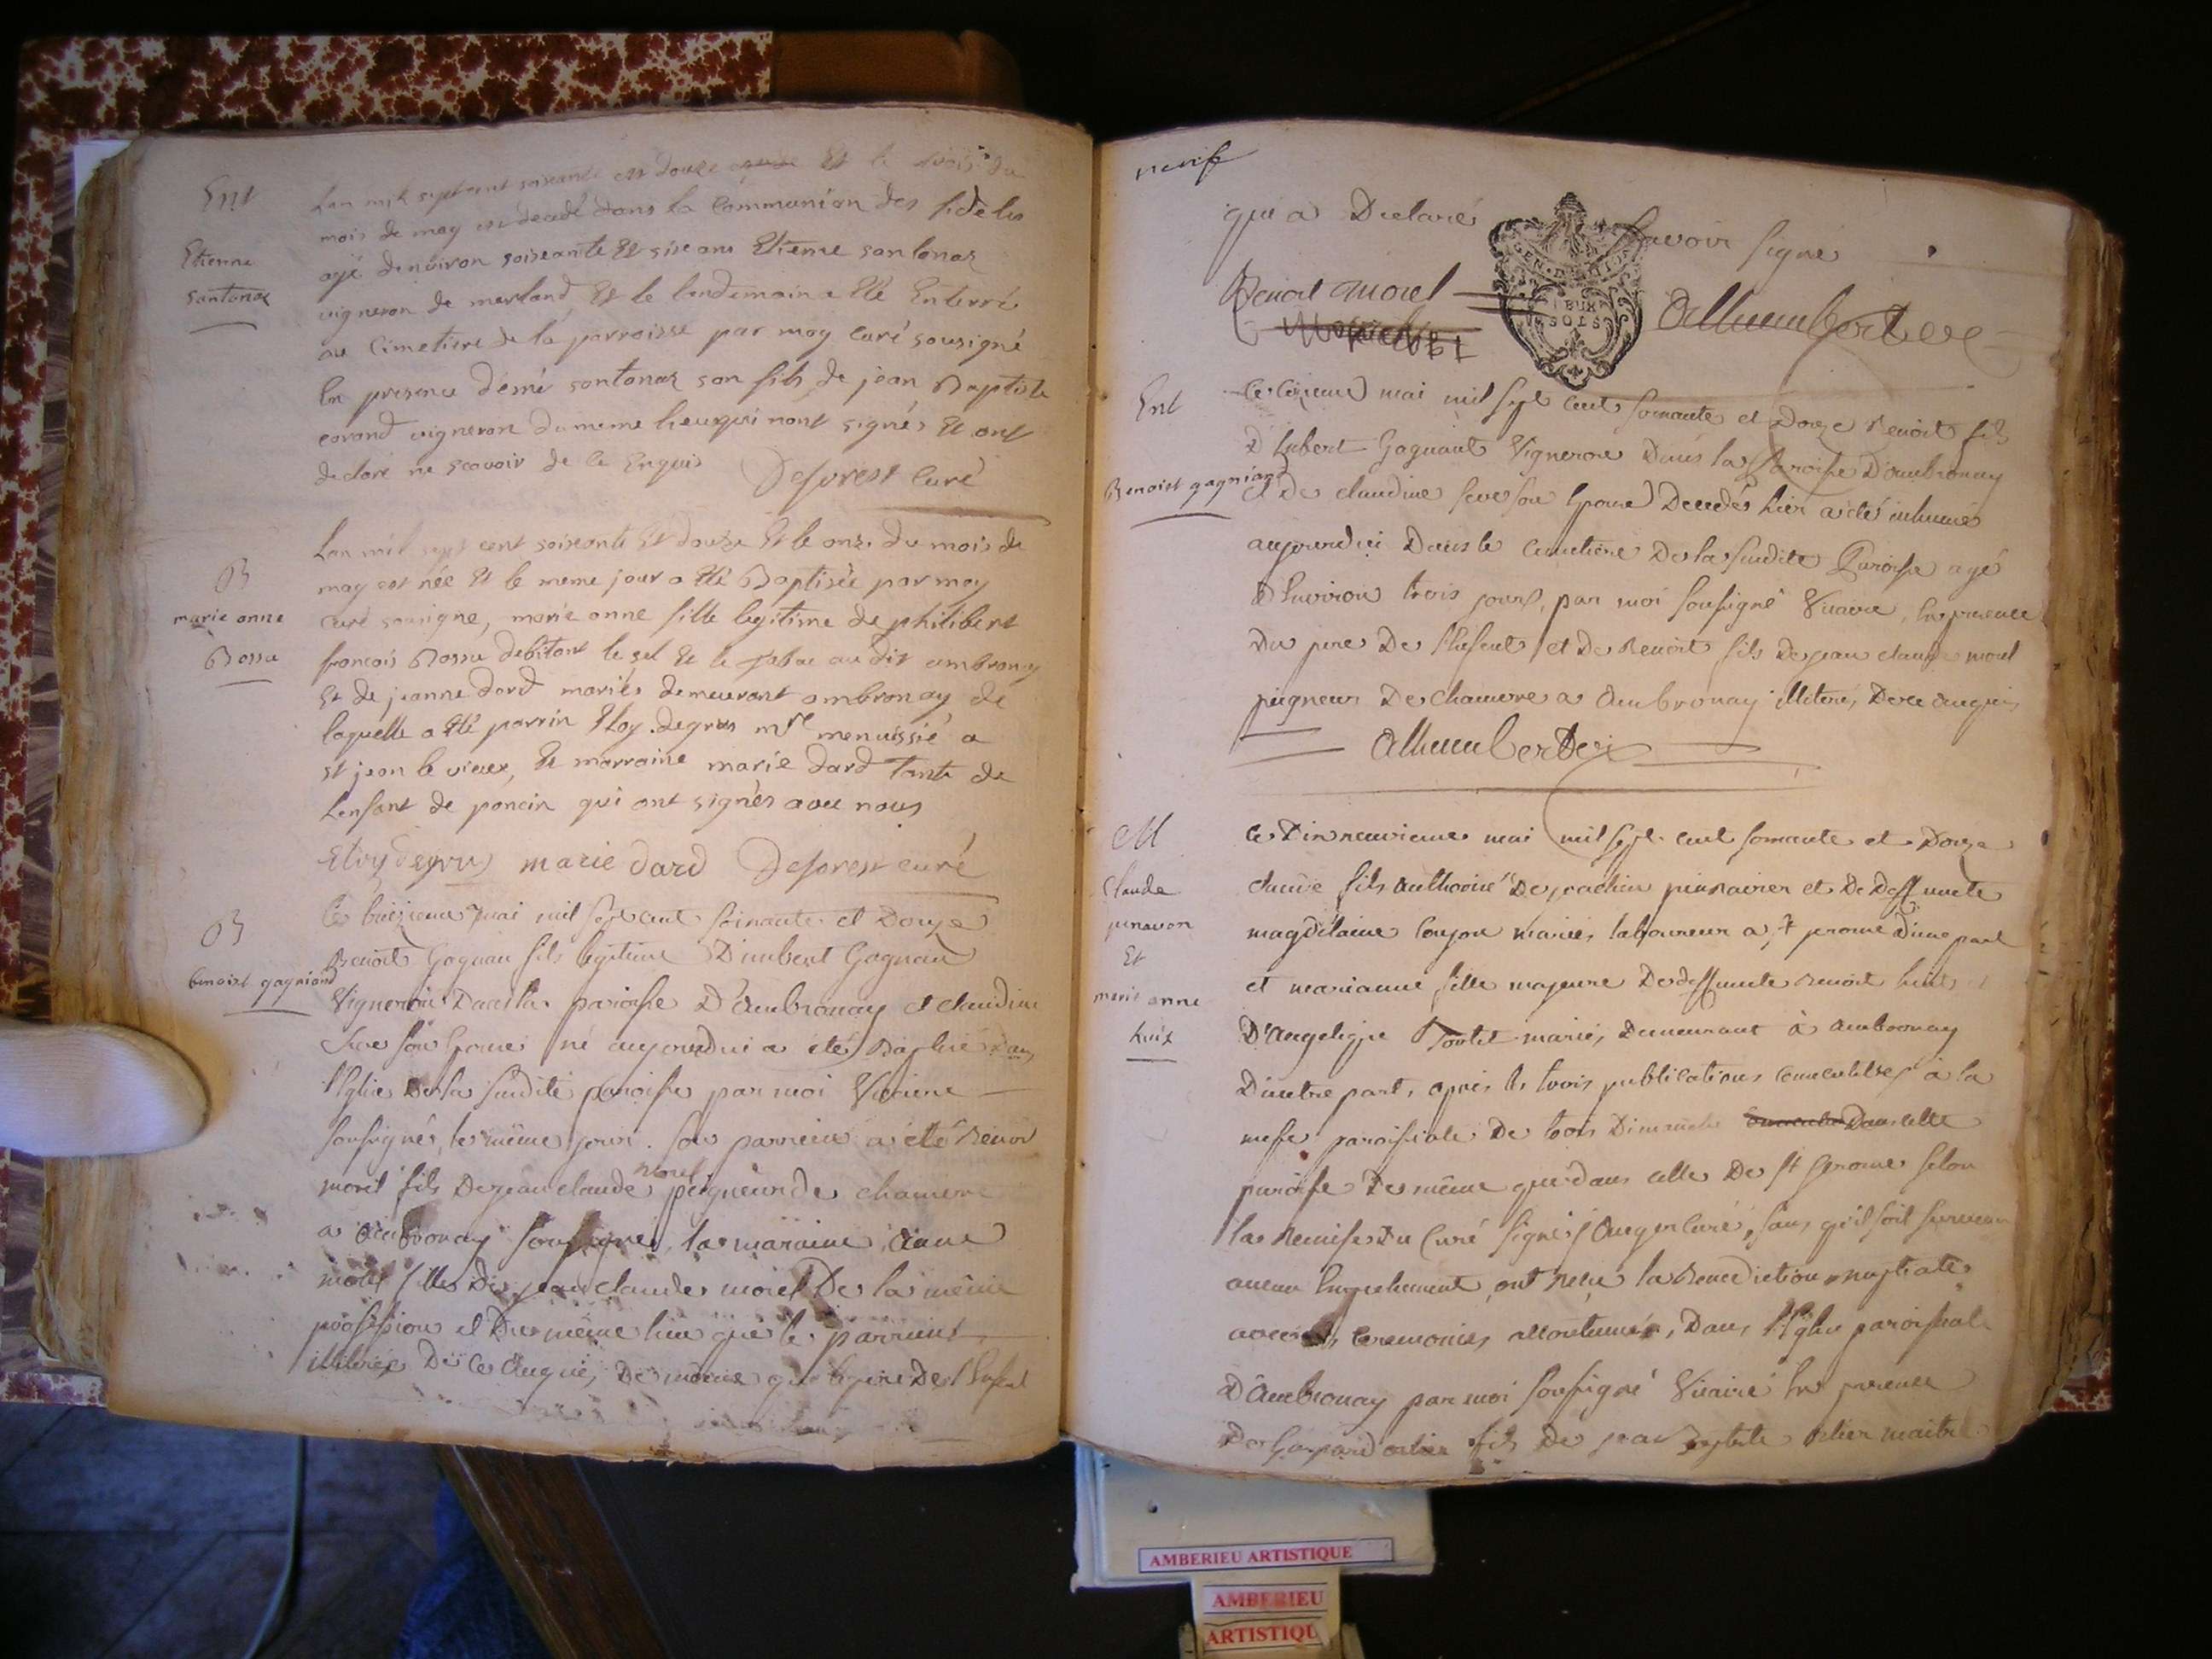 Ent
Etienne
santonax
Lan mil sept cent soixante et douze Et le trois du
mois de may est decede dans la Communion des fideles
agé denviron soixante Et six ans Etienne santonax
vigneron de merland Et le landemain a Eté Enterré
au Cimetiere de la parroisse par moy curé sousigné
En presence d'emé santonax son fils, de jean Baptiste
corand vigneron du meme lieu qui nont signés Et ont
declaré ne scavoir de ce Enquis Deforest Curé
B
marie anne
Bossu
Lan mil sept cent soixante Et douze Et le onze du mois de
may est née Et le meme jour a Eté Baptisée par moy
curé sousigne, marie anne fille legitime de philibert
francois Bossu debitant le sel Et le tabac au dit ambronay
Et de jeanne dard mariés demeurant ambronay de
laquelle a Eté parrin Eloy degrus mre menuissié a
st jean le vieux, Et marraine marie dard tante de
Lenfant de poncin qui ont signés avec nous
Eloy degrus marie dard Deforest curé
B
benoist gagniand
Le mai mil sept cent soixante et Douze
Benoit Gagnau fils legitime D'imbert Gagnau
Vigneron Dans la paroisse D'Ambronay et claudine
Seve son Epouse né aujourdui a été Baptisé dans
l'Eglise De la susdite paroisse par moi Vicaire
soussigné, le même jour. son parrein a été Benoit
morel fils De jean claude morel peigneur de chanvre
a Ambronay soussigné, la maraine Anne
morel fille De jean claude morel De la même
profession et Du même lieu que le parrein
illiterée De ce Enquis, De même que le pere De l'Enfant
neuf
qui a Declaré savoir signé
GEN DE
SOLS
Benoit morel Alhumbert vic
Ent
Benoist gagniand
Le mai mil sept cent soixante et Douze Benoit fils
D'hubert Gagnant Vigneron Dans la Paroisse D'ambronay
et De claudine seve son Epouse Decedés hier a été inhumé
aujourdui Dans le Cimetière De la susdite Paroisse agé
D'Environ trois jours, par moi soussigné Vicaire, En presence
Du pere De l'Enfent et De Benoit fils De jean claude morel
peigneur De chanvre a Ambronay illiteré, De ce enquis
Alhumbert vic
M
Claude
punavon
Et
marie anne
huit
Le Dix neuvieme mai mil sept cent soixante et Douze
claude fils De joachin et De Deffuncte
magdelaine mariés laboureur a st jerome D'une part
et marianne fille majeure De deffuncte Benoit huit et
D'Angeliqe mariés, Demeurant à Ambronay
D'autre part, après les trois publications à la
messe paroissiale De trois Dimanche Dans cette
paroisse De même que dans celle De st Jerome selon
la Remise Du Curé signé Curé, sans qu'il soit survenu
aucun Empechement, ont reçu la Benediction nuptiale
avec les ceremonies accoutumées, Dans l'Eglise paroissiale
D'Ambronay par moi soussigné Vicaire En presence
De Gaspard orlier fils De jean Baptiste orlier maitre
AMBERIEU ARTISTIQUE
AMBERIEU
ARTISTIQU